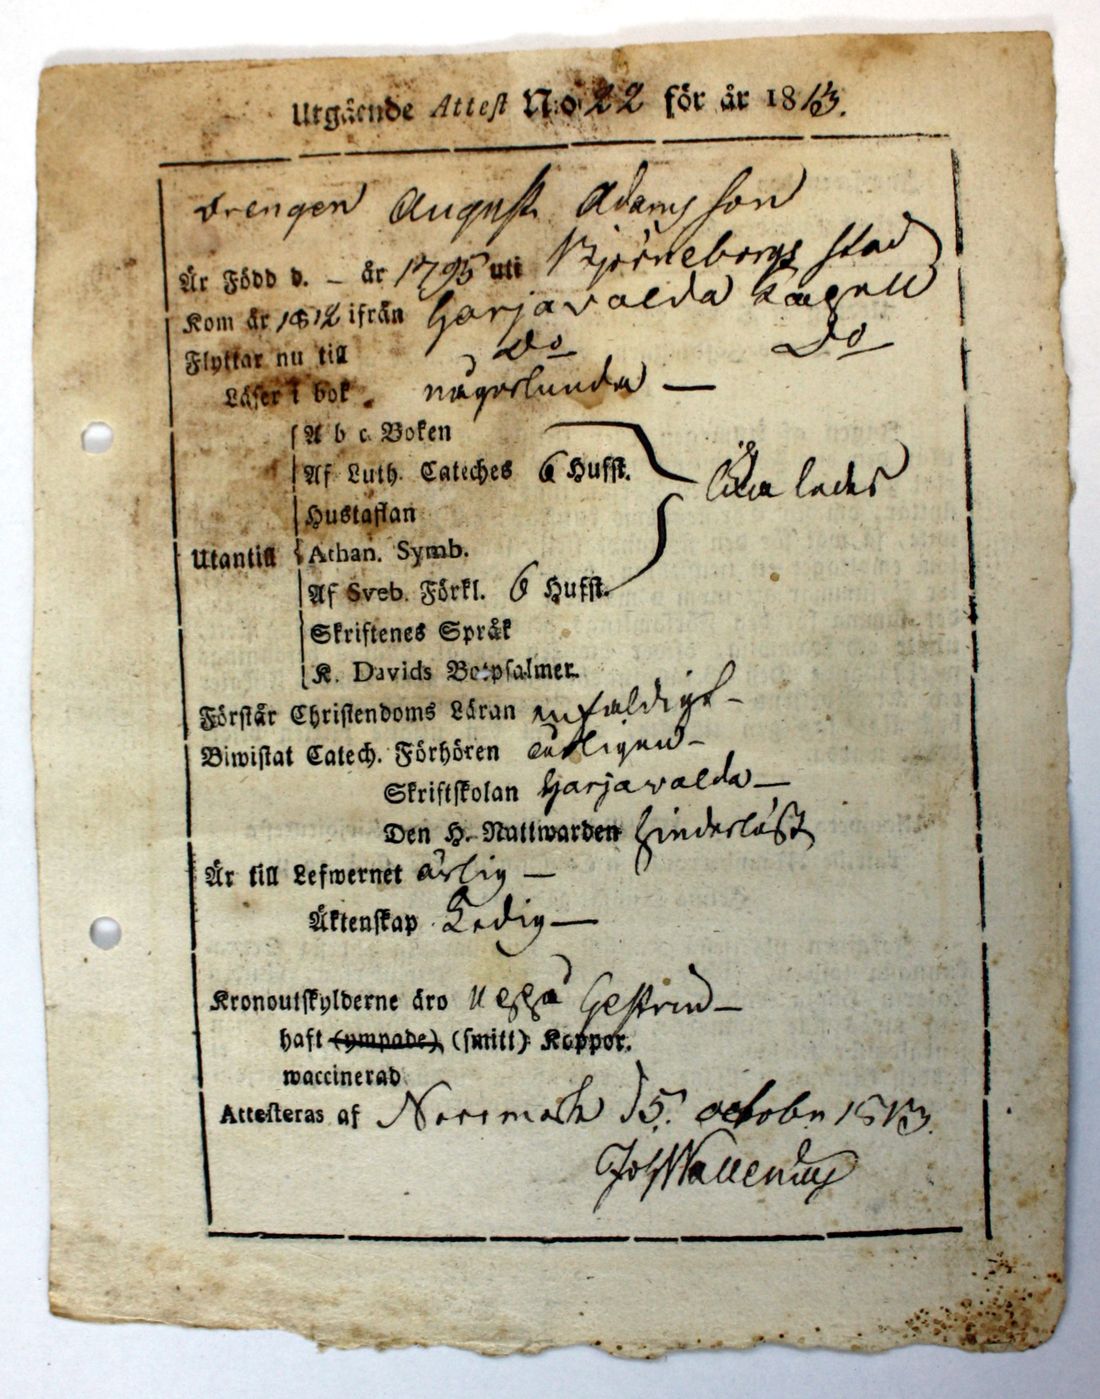 Utgående Attest N:o 22 för år 1813.
Drengen August Adamsson
Är Född d. – år 1795 uti Björneborgs stad
Kom år 1812 ifrån Harjavalda Capell
Flyttar nu till Do Do
Läser i bok någorlunda —
A b c Boken
Af Luth. Cateches 6 Hufst. lika ledes
Hustaflan
Utantill Athan. Symb.
Af Sveb. Förkl. 6 Hufst.
Skriftenes Språk
K. Davids Botpsalmer.
Förstår Christendoms Läran enfaldigt –
Biwistat Catech. Förhören årligen –
Skriftskolan Harjavalda —
Den H. Nattwarden hinderlöst
Är till Lefwernet ärlig —
Äktenskap Ledig —
Kronoutskylderne äro
haft (ympade) (smitt) Koppor.
waccinerad
Attesteras af Norrmark d 5. octobr 1813.
Joh Wallenius